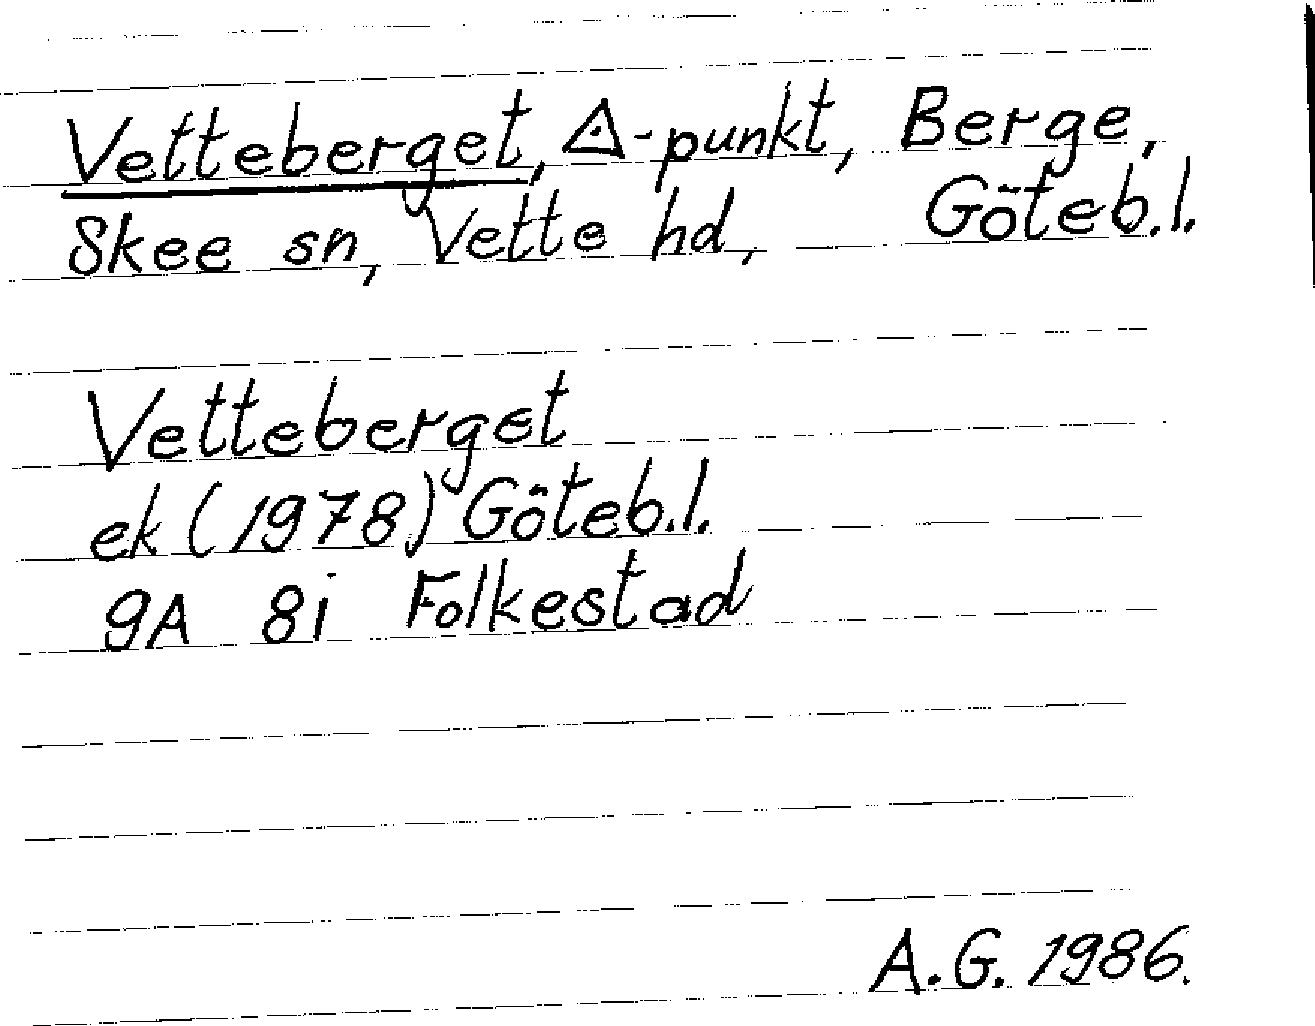 Vetteberget, △-punkt, Berge,
Skee sn, Vette hd, Göteb.l.
Vetteberget
ek (1978) Göteb.l.
9A 8i Folkestad
A.G. 1986.